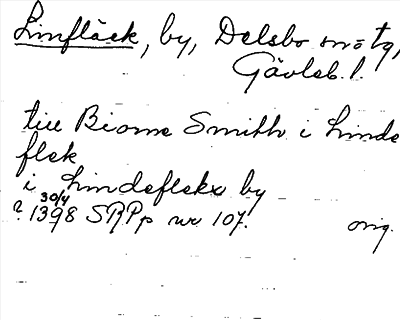 Linfläck, by, Delsbo sn o tg,
Gävleb. l.
till Biorne Smith i Linde
flek
i Lindeflekx by
30/4
? 1398 SRPp nr 107. orig.